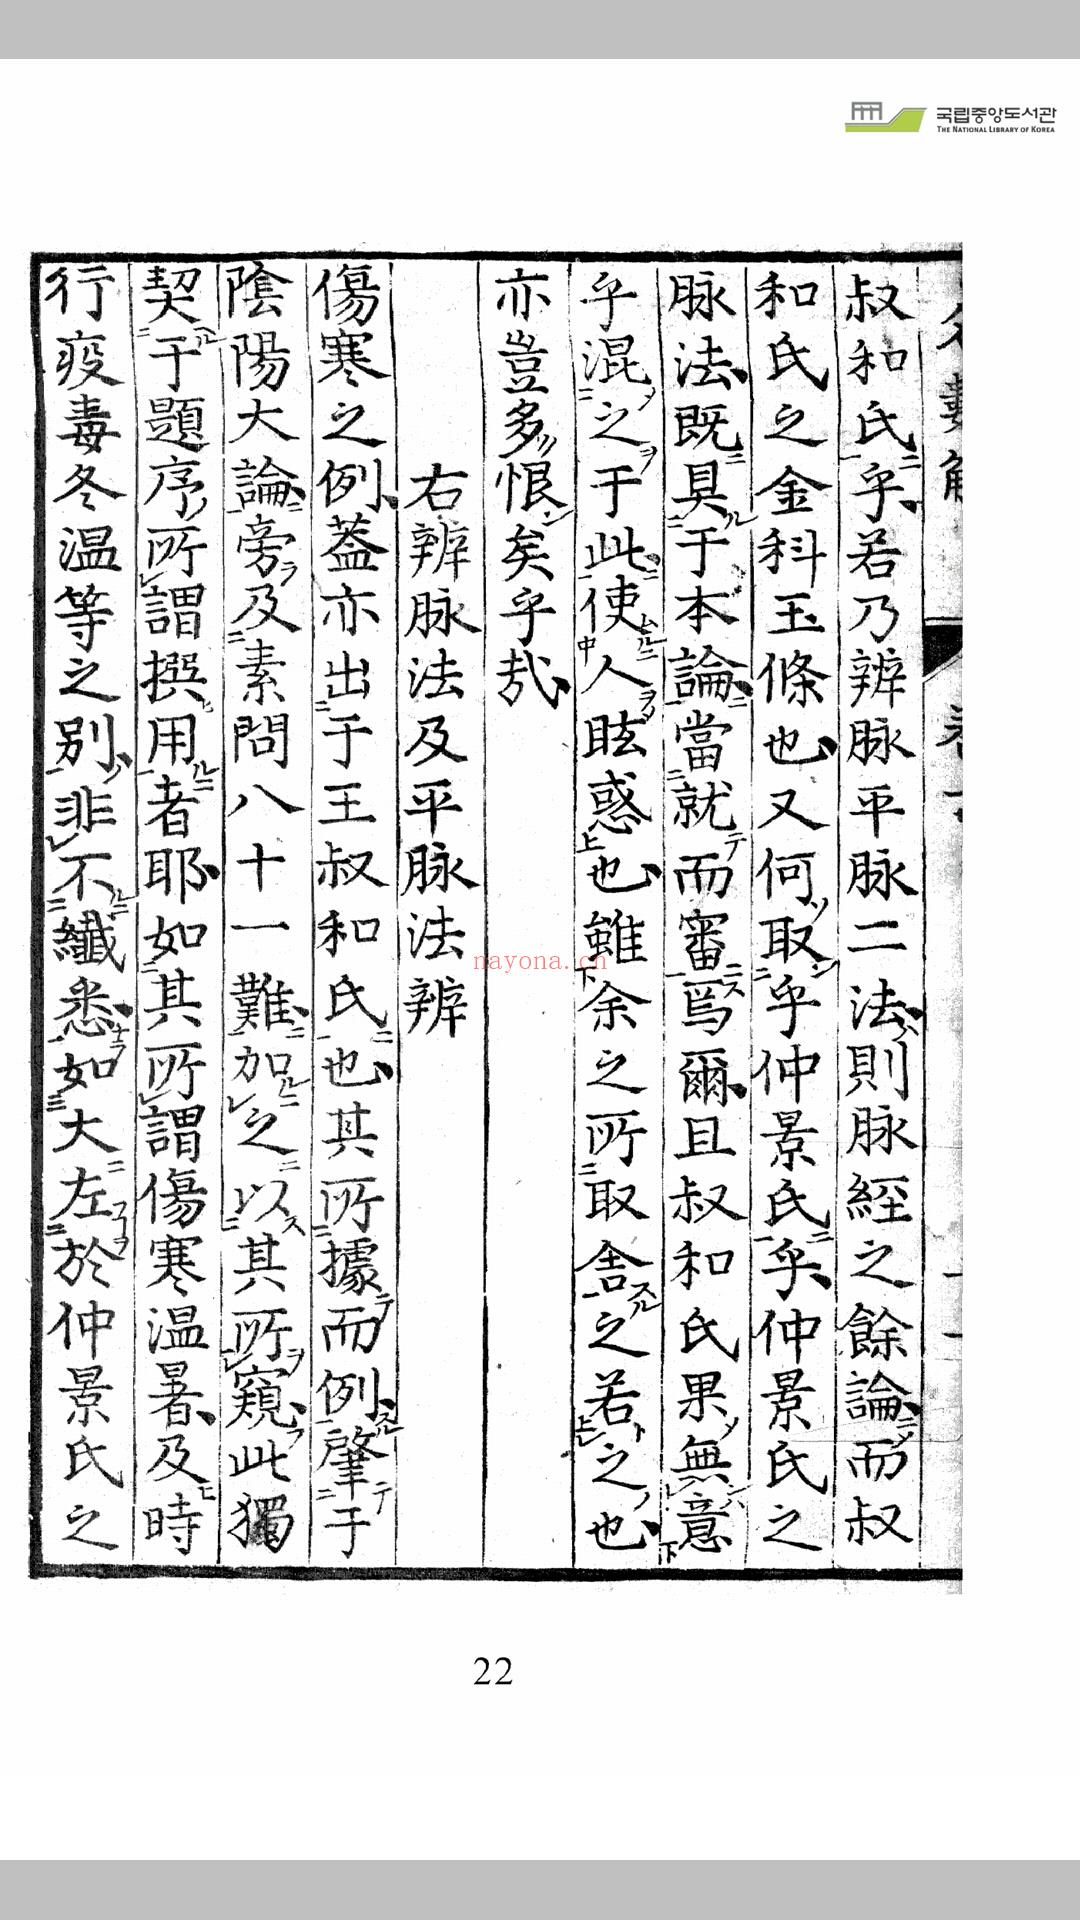 국립중앙도서관
THE NATIONAL LIBRARY OF KOREA
叔和氏乎若乃辨脉平脉二法則脉經之餘論而叔
和氏之金科玉條也又何取乎仲景氏乎仲景氏之
脉法既具于本論當就而審焉爾且叔和氏果無意
乎混之于此使人眩惑也雖余之所取舍之若之也
亦豈多恨矣乎哉
右辨脉法及平脉法辨
傷寒之例蓋亦出于王叔和氏也其所據而例肇于
陰陽大論旁及素問八十一難加之以其所窺此獨
契于題序所謂撰用者耶如其所謂傷寒温暑及時
行疫毒冬温等之別非不纖悉如大左於仲景氏之
nayona.cn
22